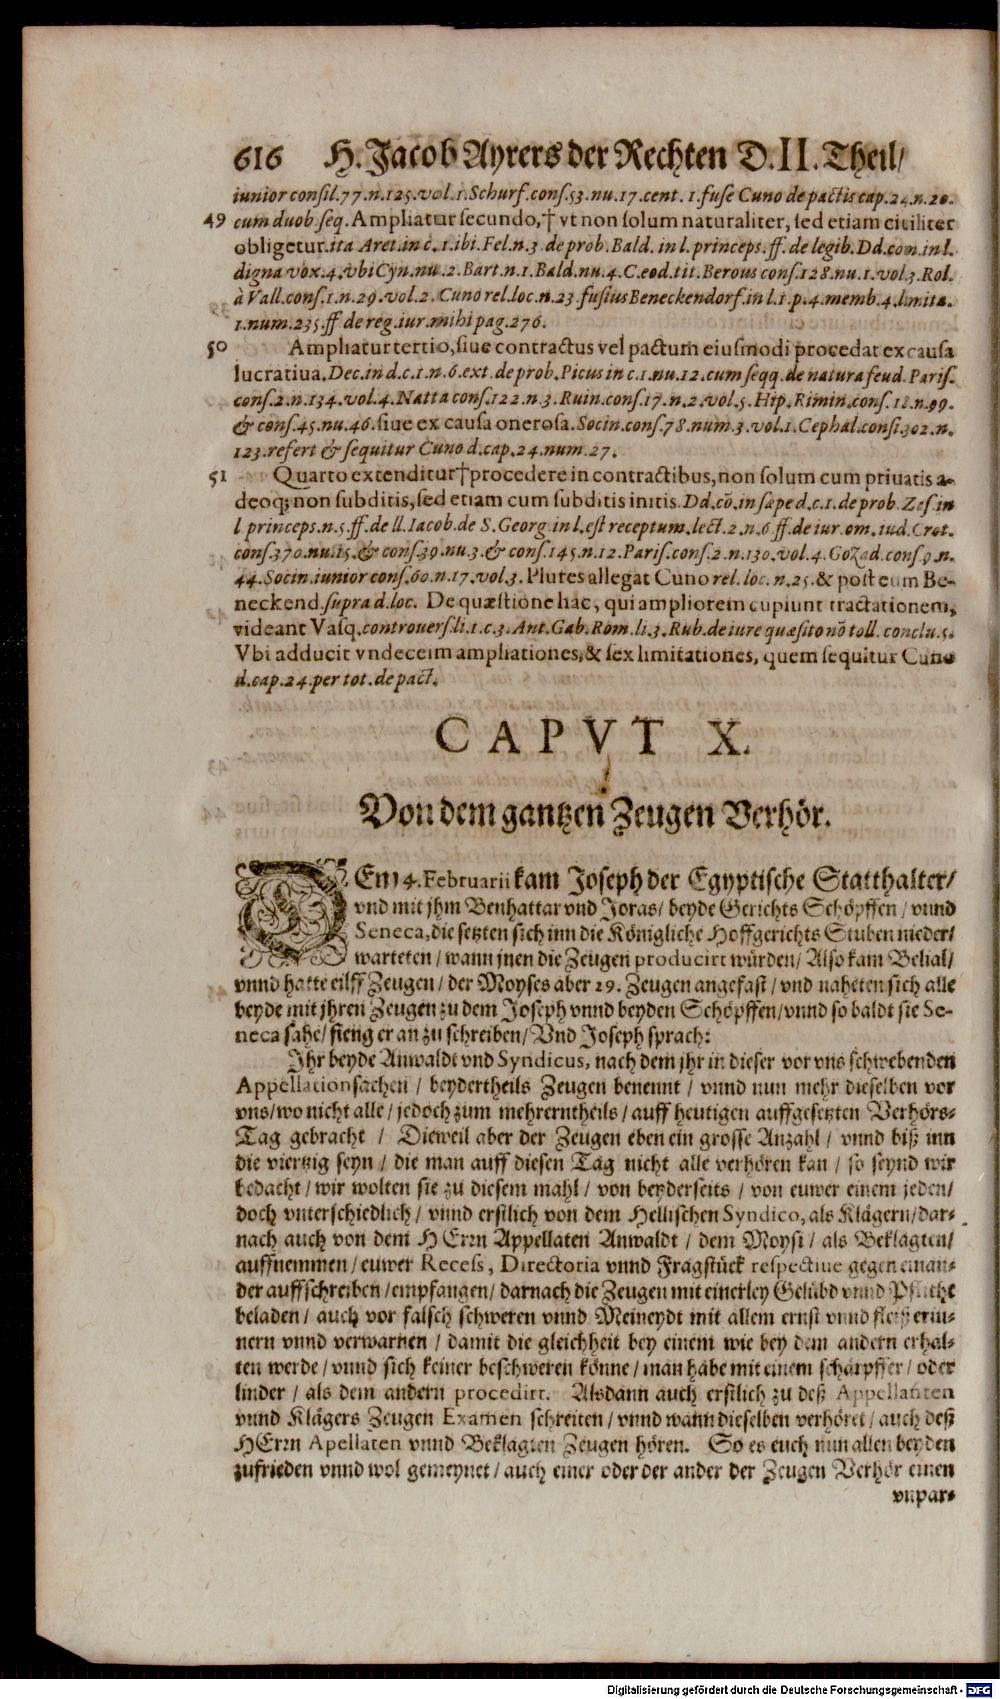 616 H. Jacob Ayrers der Rechten D. II. Theil/
iunior consil.77.n.125.vol.1.Schurf.cons.53.nu.17.cent. 1.fuse Cuno de pactis cap.24.n.20.
49 cum duob seq. Ampliatur secundo,† vt non solum naturaliter, sed etiam ciuiliter
obligetur. ita Aret. in c. 1. ibi. Fel. n. 3. de prob. Bald. in l. princeps. ff. de legib. Dd. com. in l.
digna vox. 4. vbi Cyn. nu. 2. Bart. n. 1. Bald. nu. 4. C. eod. tit. Berous cons. 128. nu. 1. vol. 3. Rol.
à Vall. cons. 1. n. 29. vol. 2. Cuno rel. loc. n. 23. fusius Beneckendorf. in l. 1. p. 4. memb. 4. limita.
1. num. 235. ff de reg. iur. mihi pag. 276.
50 Ampliatur tertio, siue contractus vel pactum eiusmodi procedat ex causa
lucratiua. Dec. in d. c. 1. n. 6. ext. de prob. Picus in c. 1. nu. 12. cum seqq. de natura feud. Paris.
cons. 2. n. 134. vol. 4. Natta cons. 122. n. 3. Ruin. cons. 17. n. 2. vol. 5. Hip. Rimin. cons. 18. n. 99.
& cons. 45. nu. 46. siue ex causa onerosa. Socin. cons. 78. num. 3. vol. 1. Cephal. consi. 302. n.
123. refert & sequitur Cuno d. cap. 24. num. 27.
51 Quarto extenditur† procedere in contractibus, non solum cum priuatis a-
deoq; non subditis, sed etiam cum subditis initis. Dd. cō. in sæpe d. c. 1. de prob. Zas. in
l princeps. n. 5. ff. de ll. Iacob. de S. Georg. in l. est receptum. lect. 2. n. 6. ff. de iur. om. iud. Crot.
cons. 370. nu. 15. & cons. 39. nu. 3. & cons. 145. n. 12. Paris. cons. 2. n. 130. vol. 4. Gozad. cons. 9. n.
44. Socin. iunior cons. 60. n. 17. vol. 3. Plures allegat Cuno rel. loc. n. 25. & post eum Be-
neckend. supra d. loc. De quæstione hac, qui ampliorem cupiunt tractationem,
videant Vasq. controvers. li. 1. c. 3. Ant. Gab. Rom. li. 3. Rub. de iure quæsito nō toll. conclu. 5.
Vbi adducit vndecem ampliationes, & sex limitationes, quem sequitur Cuno
d. cap. 24. per tot. de pact.
CAPVT X.
Von dem gantzen Zeugen Verhör.
DEm 14. Februarii kam Joseph der Egyptische Statthalter/
vnd mit jhm Benhattar vnd Joras/ beyde Gerichts Schöpffen / vnnd
Seneca, die setzten sich inn die Königliche Hoffgerichts Stuben nieder/
warteten / wann jnen die Zeugen producirt würden/ Also kam Belial/
vnnd hatte eilff Zeugen / der Moyses aber 29. Zeugen angefast / vnd naheten sich alle
beyde mit jhren Zeugen zu dem Joseph vnnd beyden Schöpffen/ vnnd so baldt sie Se-
neca sahe/ fieng er an zu schreiben/ Vnd Joseph sprach:
Ihr beyde Anwaldt vnd Syndicus, nach dem jhr in dieser vor vns schwebenden
Appellationsachen / beydertheils Zeugen benennt / vnnd nun mehr dieselben vor
vns/ wo nicht alle / jedoch zum mehrerntheils / auff heutigen auffgesetzten Verhörs-
Tag gebracht / Dieweil aber der Zeugen eben ein grosse Anzahl / vnnd biß inn
die viertzig seyn / die man auff diesen Tag nicht alle verhören kan / so seynd wir
bedacht / wir wolten sie zu diesem mahl / von beyderseits / von euwer einem jeden/
doch vnterschiedlich / vnnd erstlich von dem Hellischen Syndico, als Klägern/ dar-
nach auch von dem HErrn Appellaten Anwaldt / dem Moysi / als Beklagten/
auffnemmen / euwer Recess, Directoria vnnd Fragstück respectiue gegen einan-
der auffschreiben / empfangen / darnach die Zeugen mit einerley Gelübd vnnd Pflicht
beladen / auch vor falsch schweren vnnd Meineydt mit allem ernst vnnd fleiß erin-
nern vnnd verwarnen / damit die gleichheit bey einem wie bey dem andern erhal-
ten werde / vnnd sich keiner beschweren könne / man habe mit einem schärpffer / oder
linder / als dem andern procedirt. Alsdann auch erstlich zu deß Appellanten
vnnd Klägers Zeugen Examen schreiten / vnnd wann dieselben verhöret / auch deß
HErrn Apellaten vnnd Beklagten Zeugen hören. So es euch nun allen beyden
zufrieden vnnd wol gemeynet / auch einer oder der ander der Zeugen Verhör einen
vnpar-
Digitalisierung gefördert durch die Deutsche Forschungsgemeinschaft - DFG